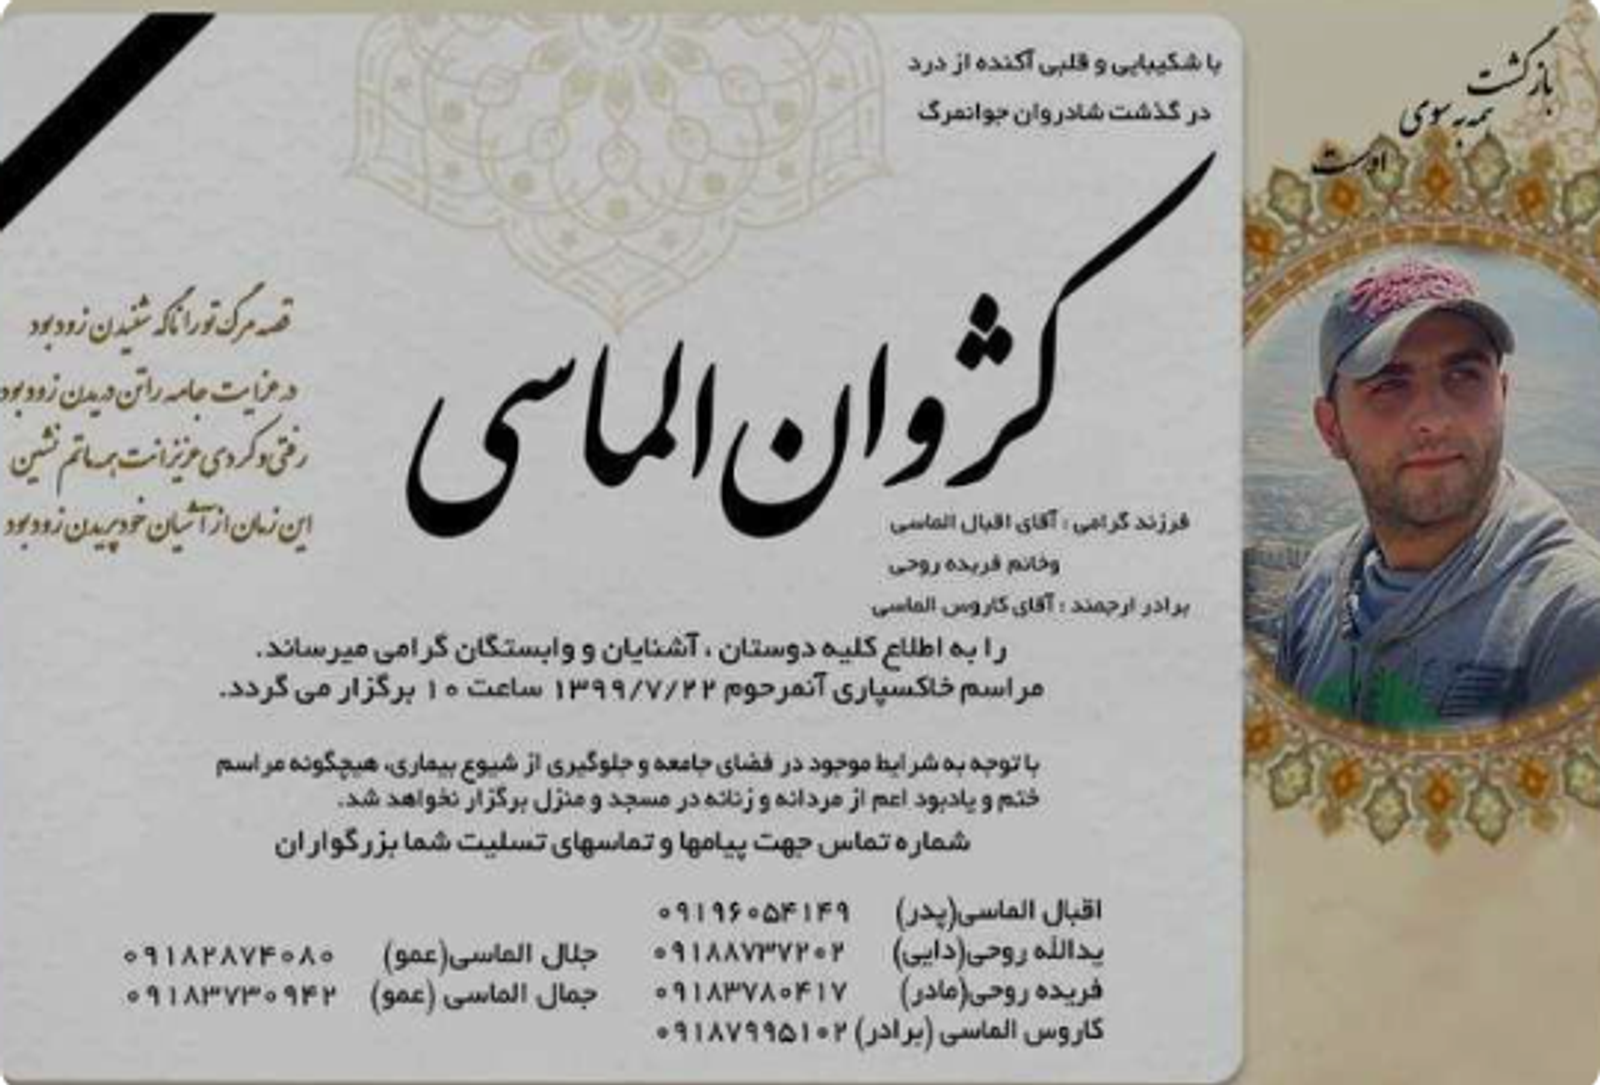 بازگشت
همه به سوی
اوست
با شکیبایی و قلبی آکنده از درد
در گذشت شادروان جوانمرگ
کژوان الماسی
فرزند گرامی : آقای اقبال الماسی
وخانم فریده روحی
برادر ارجمند : آقای کاروس الماسی
را به اطلاع کلیه دوستان ، آشنایان و وابستگان گرامی میرساند.
مراسم خاکسپاری آنمرحوم ۱۳۹۹/۷/۲۲ ساعت ۱۰ برگزار می گردد.
با توجه به شرایط موجود در فضای جامعه و جلوگیری از شیوع بیماری، هیچگونه مراسم
ختم و یادبود اعم از مردانه و زنانه در مسجد و منزل برگزار نخواهد شد.
شماره تماس جهت پیامها و تماسهای تسلیت شما بزرگواران
اقبال الماسی(پدر) ۰۹۱۹۶۰۵۴۱۴۹
یدالله روحی(دایی) ۰۹۱۸۸۷۳۷۲۰۲
فریده روحی(مادر) ۰۹۱۸۳۷۸۰۴۱۷
کاروس الماسی (برادر) ۰۹۱۸۷۹۹۵۱۰۲
جلال الماسی(عمو) ۰۹۱۸۲۸۷۴۰۸۰
جمال الماسی (عمو) ۰۹۱۸۳۷۳۰۹۴۲
قصه مرگ تو را ناگه شنیدن زود بود
در عزایت جامه را تن دریدن زود بود
رفتی و کردی عزیزانت همه ماتم نشین
این زمان از آشیان خود پریدن زود بود